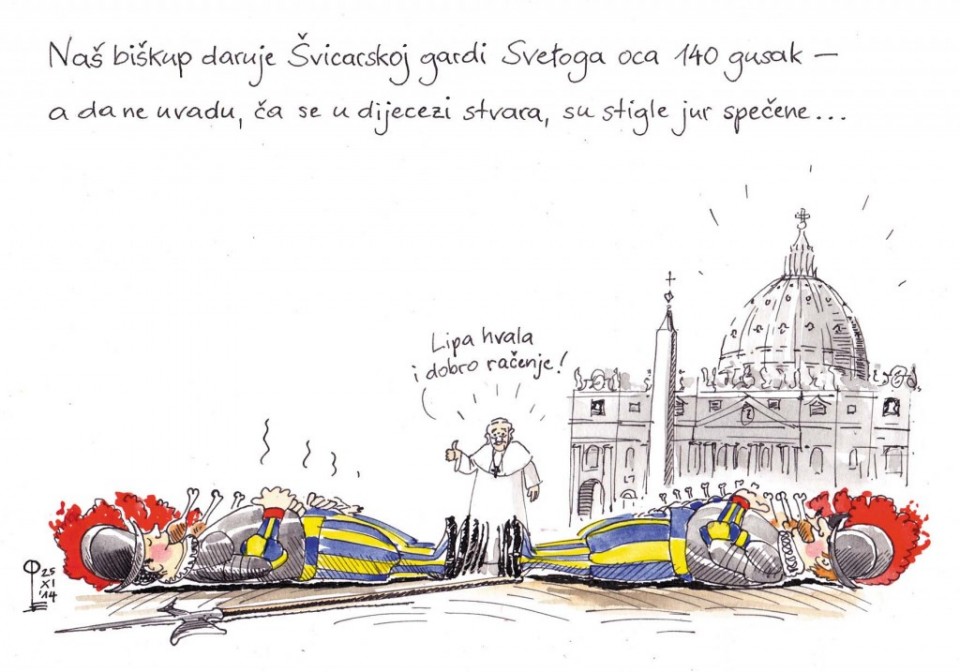 Naš biškup daruje Švicarskoj gardi Svetoga oca 140 gusak –
a da ne uvadu, ča se u dijecezi stvara, su stigle jur spečene...
Lipa hvala
i dobro račenje!
25
XI
'14